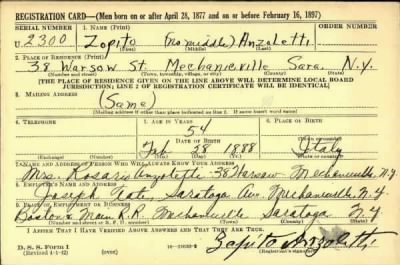 REGISTRATION CARD—(Men born on or after April 28, 1877 and on or before February 16, 1897)
SERIAL NUMBER 1. NAME (Print)
U 2300 Zopito (no middle) Anzoletti
(First) (Middle) (Last)
2. PLACE OF RESIDENCE (Print)
38 Warsaw St. Mechanicville Sara. N.Y.
(Number and street) (Town, township, village, or city) (County) (State)
[THE PLACE OF RESIDENCE GIVEN ON THE LINE ABOVE WILL DETERMINE LOCAL BOARD
JURISDICTION; LINE 2 OF REGISTRATION CERTIFICATE WILL BE IDENTICAL]
3. MAILING ADDRESS
(Same)
[Mailing address if other than place indicated on line 2. If same insert word same]
4. TELEPHONE 5. AGE IN YEARS 6. PLACE OF BIRTH
54
DATE OF BIRTH
Feb 28 1888 Italy
7. NAME AND ADDRESS OF PERSON WHO WILL ALWAYS KNOW YOUR ADDRESS
Mrs. Rosario Anzoletti 38 Warsaw Mechanicville N.Y
8. EMPLOYER'S NAME AND ADDRESS
Joseph Saratoga Av. Mechanicville, N.Y
9. PLACE OF EMPLOYMENT OR BUSINESS
Boston & Main R.R. Mechanicville Saratoga N.Y
I AFFIRM THAT I HAVE VERIFIED ABOVE ANSWERS AND THAT THEY ARE TRUE.
D. S. S. Form 1
(Revised 4-1-42) (over) Zopito Anzoletti
(Registrant's signature)